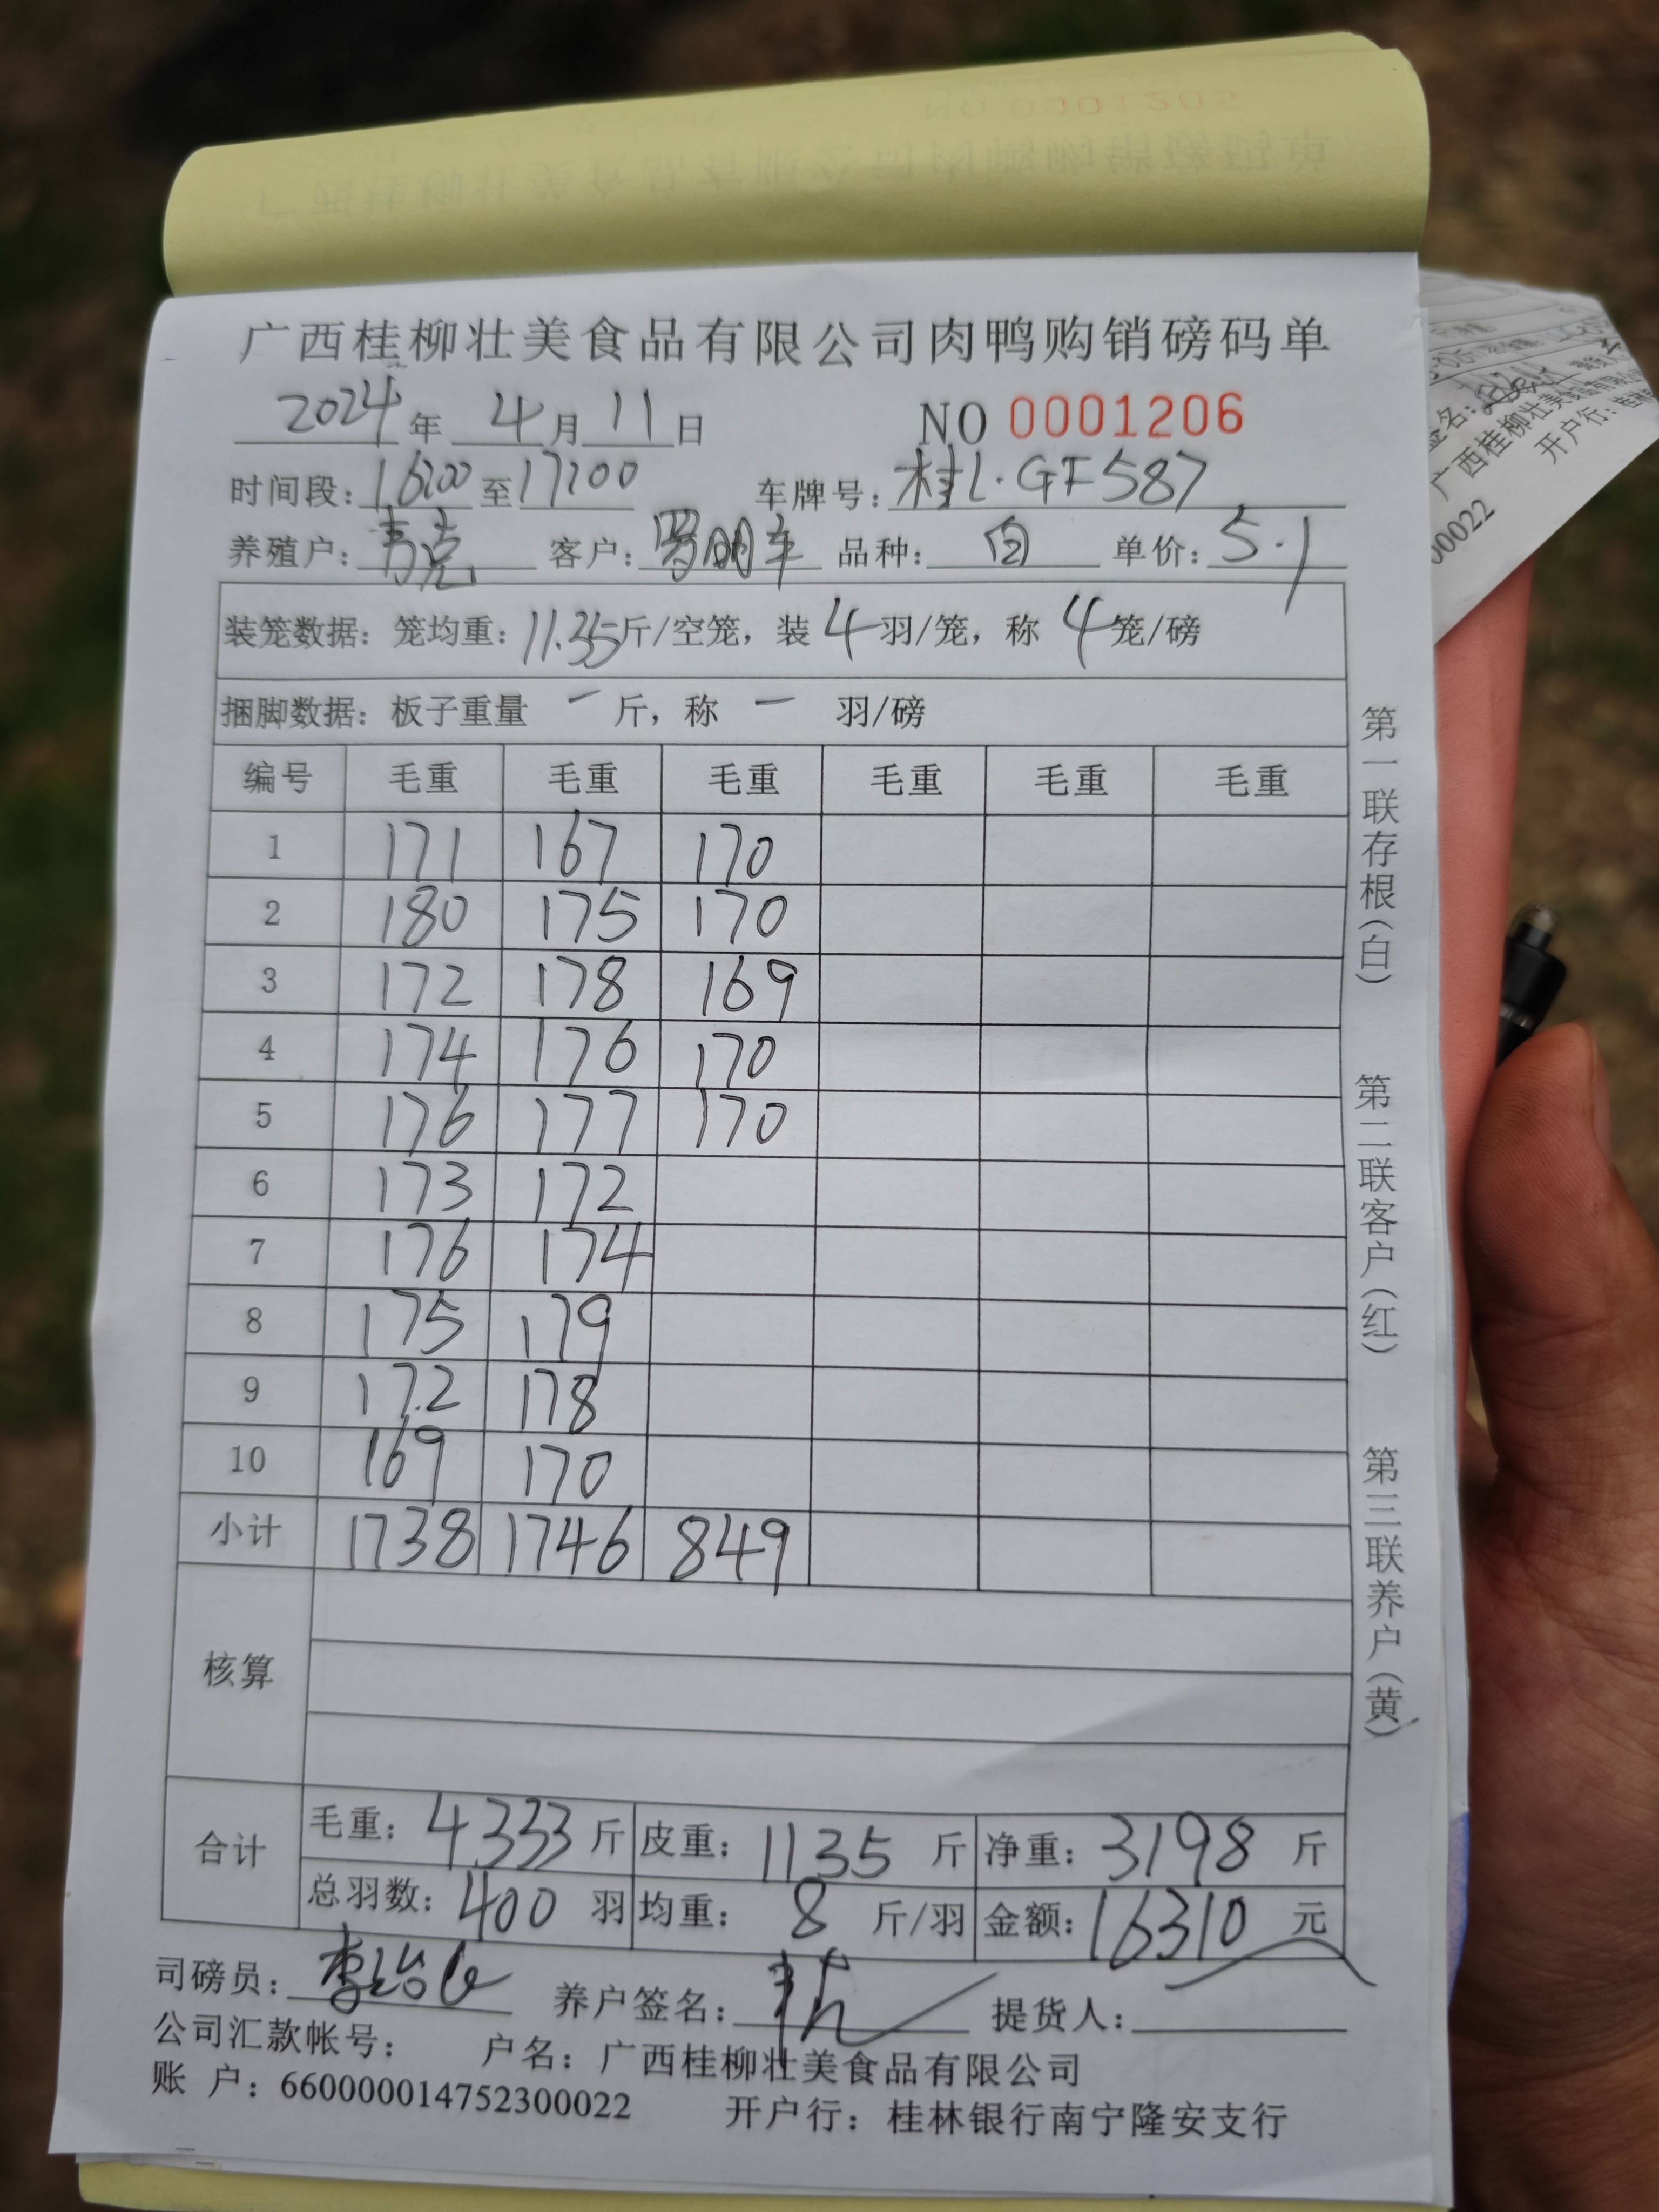 广西桂柳壮美食品有限公司肉鸭购销磅码单
2024年 4月 11日 NO 0001206
时间段:16:00至17:00 车牌号:桂L·GF587
养殖户:韦克 客户:罗明车 品种:白 单价:5.1
装笼数据:笼均重:11.35斤/空笼,装 4 羽/笼,称 4 笼/磅
捆脚数据:板子重量 一 斤,称 一 羽/磅
编号 毛重 毛重 毛重 毛重 毛重 毛重
1 171 167 170
2 180 175 170
3 172 178 169
4 174 176 170
5 176 177 170
6 173 172
7 176 174
8 175 179
9 172 178
10 169 170
小计 1738 1746 849
核算
合计
毛重:4333 斤 皮重:1135 斤 净重:3198 斤
总羽数:400 羽 均重:8 斤/羽 金额:16310 元
司磅员: 养户签名: 提货人:
公司汇款帐号: 户名:广西桂柳壮美食品有限公司
账 户:660000014752300022 开户行:桂林银行南宁隆安支行
第一联存根(白)
第二联客户(红)
第三联养户(黄)
签名:
广西桂柳壮美食品有限公司
开户行:
00022
NO 0001205
广西桂柳壮美食品有限公司肉鸭购销磅码单